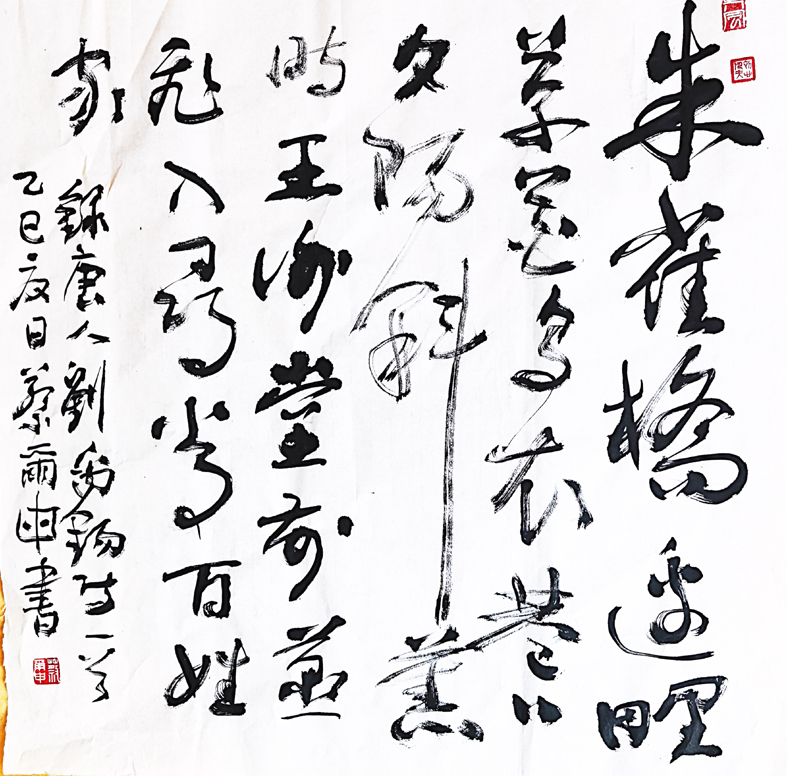 朱雀橋邊野
草花烏衣巷口
夕陽斜舊
時王謝堂前燕
飛入尋常百姓
家
錄唐人劉禹錫詩一首
乙巳夏日蔡爾申書